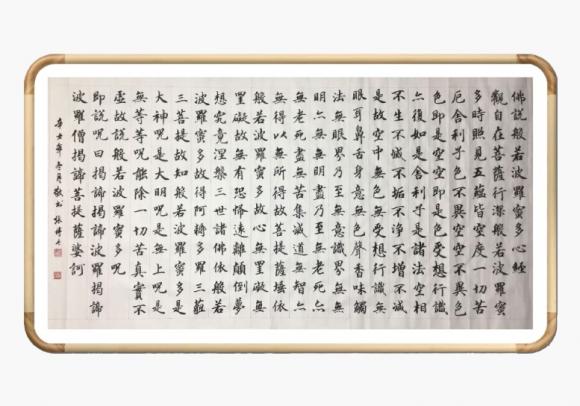 佛說般若波羅蜜多心經
觀自在菩薩行深般若波羅蜜
多時照見五蘊皆空度一切苦
厄舍利子色不異空空不異色
色即是空空即是色受想行識
亦復如是舍利子是諸法空相
不生不滅不垢不淨不增不減
是故空中無色無受想行識無
眼耳鼻舌身意無色聲香味觸
法無眼界乃至無意識界無無
明亦無無明盡乃至無老死亦
無老死盡無苦集滅道無智亦
無得以無所得故菩提薩埵依
般若波羅蜜多故心無罣礙無
罣礙故無有恐怖遠離顛倒夢
想究竟涅槃三世諸佛依般若
波羅蜜多故得阿耨多羅三藐
三菩提故知般若波羅蜜多是
大神呪是大明呪是無上呪是
無等等呪能除一切苦真實不
虛故說般若波羅蜜多呪
即說呪曰揭諦揭諦波羅揭諦
波羅僧揭諦菩提薩婆訶
年 月敬書 張